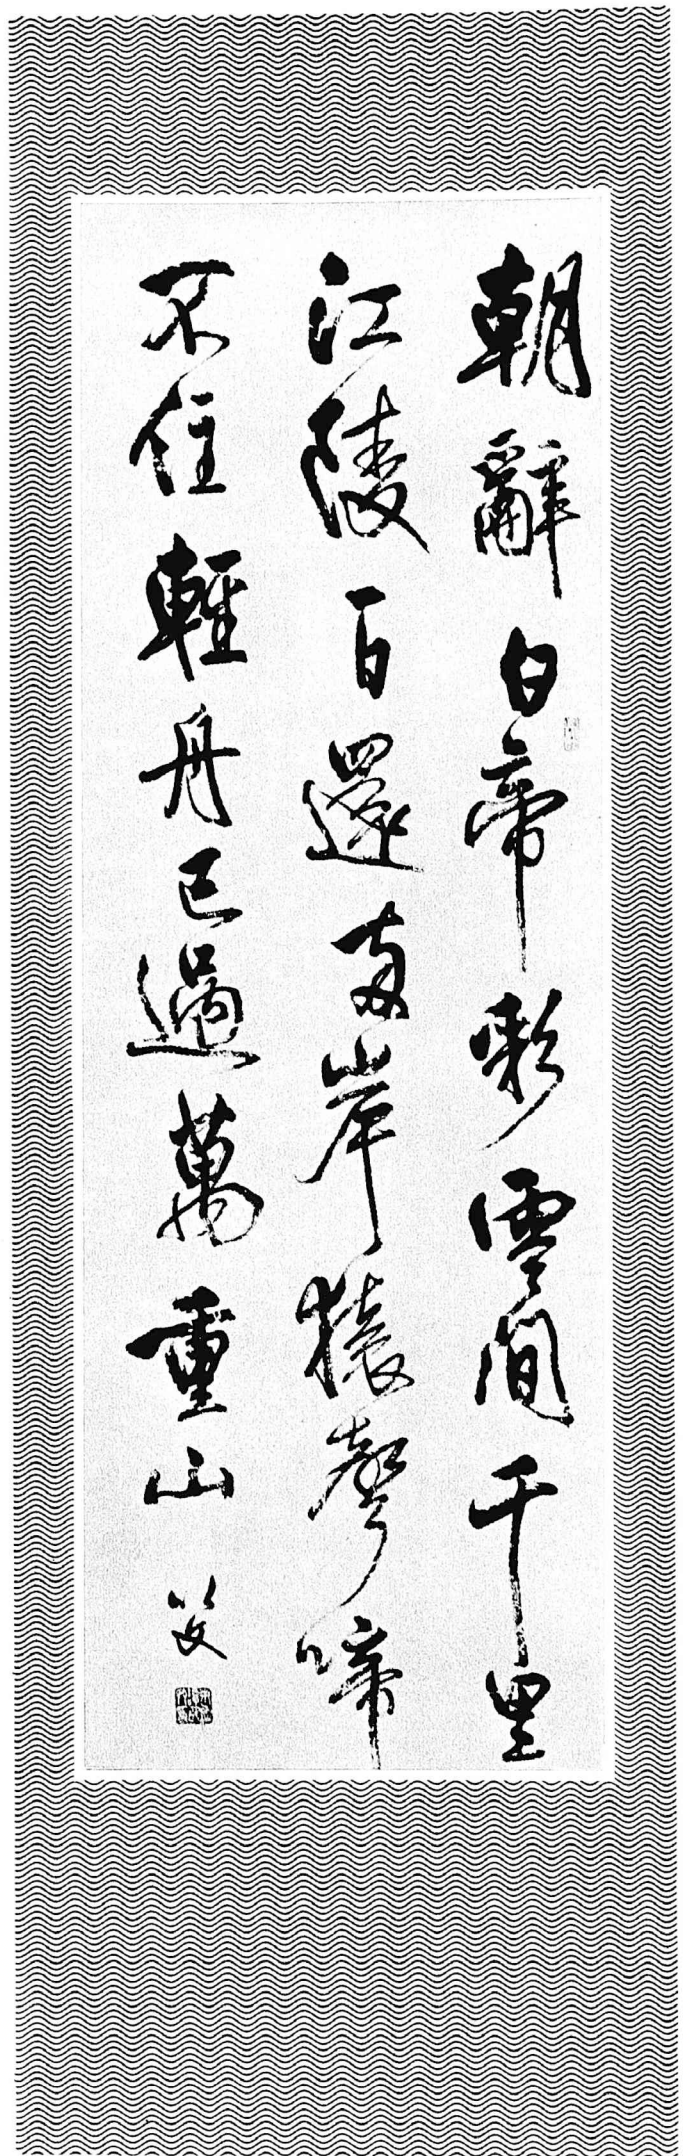 朝辭白帝彩雲間千里
江陵百還兩岸猿聲啼
不住輕舟已過萬重山